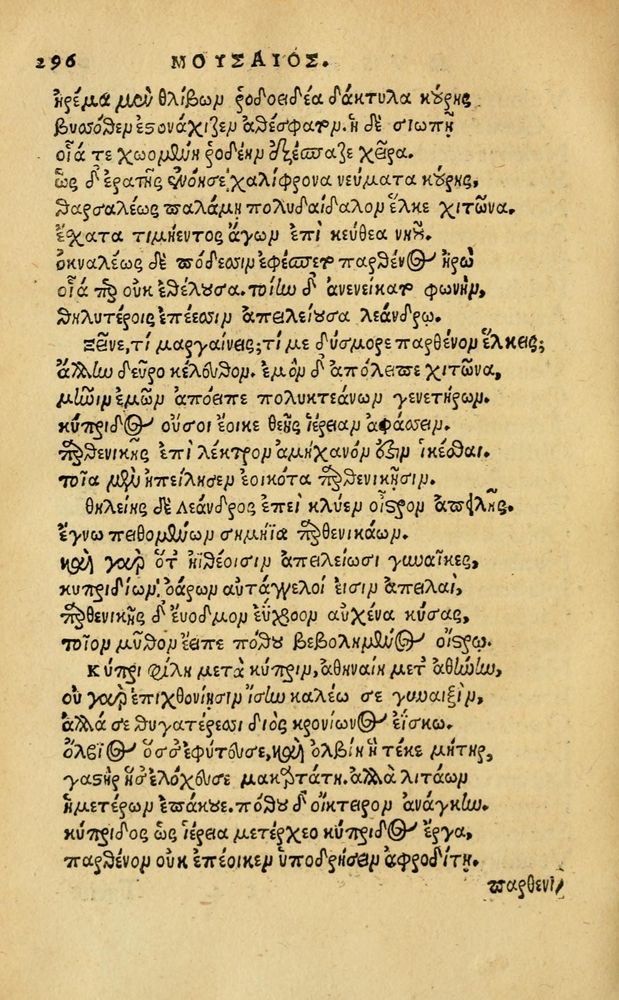 296 ΜΟΥΣΑΙΟΣ.
ἠρέμα μὲν θλίβων ῥοδοειδέα δάκτυλα κούρης
βυσόθεν ἐστονάχιζεν ἀθέσφατον. ἡ δὲ σιωπῇ
οἷά τε χωομένη ῥοδέην ἐξέσπασε χεῖρα.
ὡς δ' ἐρατῆς ἐνόησε χαλίφρονα νεύματα κούρης,
θαρσαλέως παλάμῃ πολυδαίδαλον ἕλκε χιτῶνα.
ἔσχατα τιμήεντος ἄγων ἐπὶ κεύθεα νηοῦ.
ὀκναλέως δὲ πόδεσσιν ἐφέσπετο παρθένος Ἡρὼ
οἷά περ οὐκ ἐθέλουσα. τοίην δ' ἀνενείκατο φωνήν,
θηλυτέροις ἐπέεσσιν ἀπειλείουσα λεάνδρῳ.
Ξεῖνε, τί μαργαίνεις; τί με δύσμορε παρθένον ἕλκεις;
ἄλλην δεῦρο κέλευθον. ἐμὸν δ' ἀπόλειπε χιτῶνα,
μῆνιν ἐμῶν ἀπόειπε πολυκτεάνων γενετήρων.
κύπριδος οὔσοι ἔοικε θεῆς ἱέρειαν ἀφάσσειν.
παρθενικῆς ἐπὶ λέκτρον ἀμήχανόν ἐστιν ἱκέσθαι.
τοῖα μὲν ἠπείλησεν ἐοικότα παρθενικῇσιν.
θηλείης δὲ Λεάνδρος ἐπεὶ κλύεν οἶστρον ἀπειλῆς.
ἔγνω πειθομένων σημήϊα παρθενικάων.
καὶ γὰρ ὅτ' ἠϊθέοισιν ἀπειλείωσι γυναῖκες,
κυπριδίων ὀάρων αὐτάγγελοί εἰσιν ἀπειλαί,
παρθενικῆς δ' εὔοδμον ἐΰχροον αὐχένα κύσας,
τοῖον μῦθον ἔειπε πόθου βεβολημένος οἴστρῳ.
Κύπρι φίλη μετὰ κύπριν, ἀθηναίη μετ' ἀθήνην,
οὐ γὰρ ἐπιχθονίῃσιν ἴσην καλέω σε γυναιξίν,
ἀλλά σε θυγατέρεσσι διὸς κρονίωνος ἐΐσκω.
ὄλβιος ὅς σ' ἐφύτευσε, καὶ ὀλβίη ἣ τέκε μήτηρ,
γαστὴρ ἥ σ' ἐλόχευσε μακαρτάτη. ἀλλὰ λιτάων
ἡμετέρων ἐπάκουε. πόθου δ' οἴκτειρον ἀνάγκην.
κύπριδος ὡς ἱέρεια μετέρχεο κύπριδος ἔργα,
παρθένον οὐκ ἐπέοικεν ὑποδρήσσειν ἀφροδίτῃ.
παρθενι